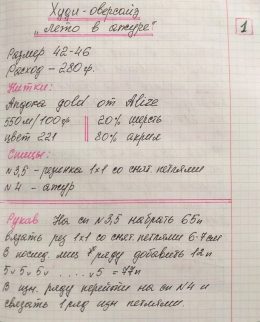 Худи-оверсайз
„Лето в ажуре"
1
Размер 42-46
Расход - 280 гр.
Нитки:
Ангора gold от Alize
550м/100гр 20% шерсть
цвет 221 80% акрил
Спицы:
№3,5 - резинка 1x1 со снят. петлями
№4 - ажур
Рукав На сп №3,5 набрать 65п
вязать рез 1x1 со снят. петлями 6-7см
В послед. лиц ряду добавить 12п
5v5v5v.....v5 = 77п
В изн. ряду перейти на сп №4 и
связать 1 ряд изн петлями.